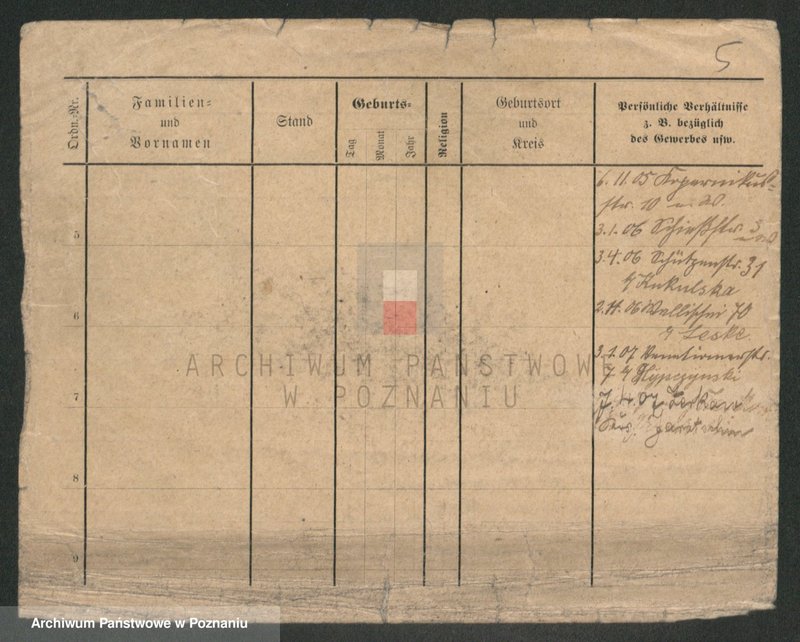 5
Ordn.-Nr.
Familien-
und
Vornamen
Stand
Geburts-
Tag
Monat
Jahr
Religion
Geburtsort
und
Kreis
Persönliche Verhältnisse
z. B. bezüglich
des Gewerbes usw.
6. 11. 05 Kopernikus-
str. 10
5
3. 1. 06 Schießstr. 3
3. 4. 06 Schützenstr. 31
Kukulska
6
2. 11. 06 Wallischei 70
Leske
3. 1. 07
7
7
7. 4. 07
8
9
ARCHIWUM PAŃSTWOWE
W POZNANIU
Archiwum Państwowe w Poznaniu